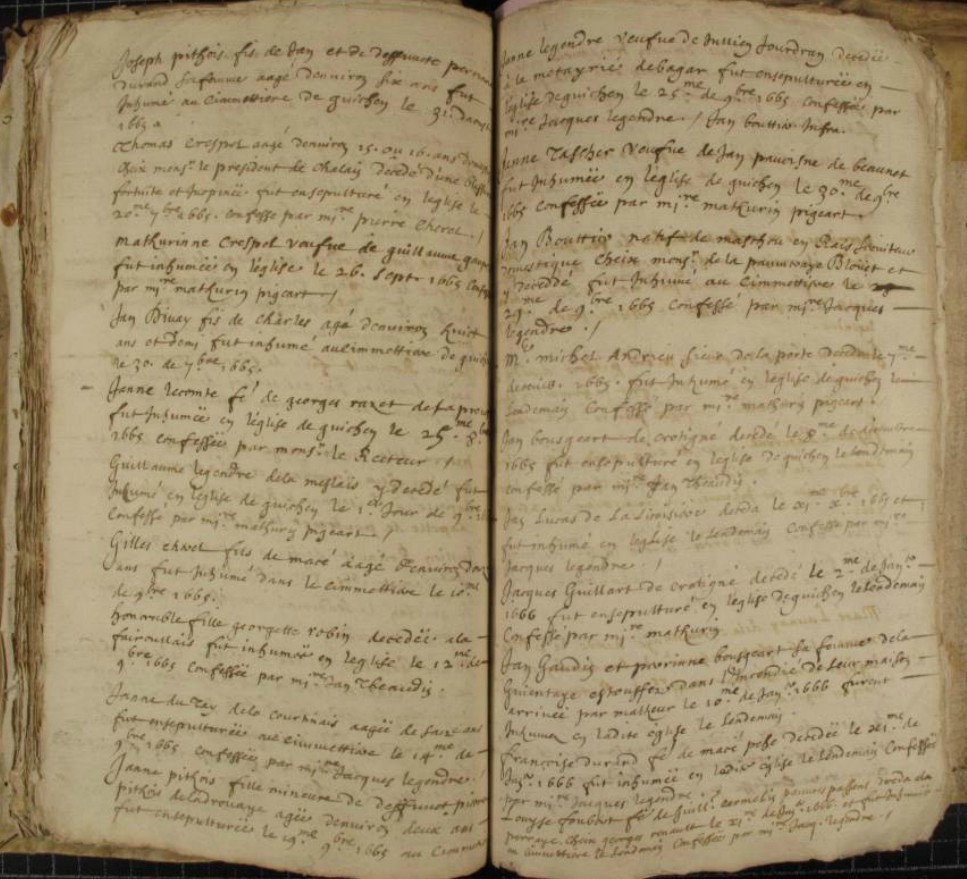 Joseph pithois fis de Jan et de deffuncte perrine
durand sa femme aagé denviron six ans fut
Inhumé au Cimmettiere de guichen le 31. daoust
1665
Thomas Crespol aagé denviron 15. ou 16. ans
cheix monsr. le president de Chalain decedé d'une
fortuite et Inopinée fut ensepulturé en leglise le
20.me 7bre 1665. confessé par mire pierre Chorel. /
mathurinne Crespol veufve de guillaume
fut inhumée en léglise le 26. Septr. 1665
par mire mathurin pigeart /
Jan Divay fis de Charles agé denviron huict
ans et demi fut inhumé au cimmettiere de
le 30. de 7bre 1665.
Janne lecomte fe de georges raxet de la
fut Inhumée en léglise de guichen le 25.me
1665 confessée par monsr. le Recteur /
Guillaume legendre de la meslais y decedé fut
Inhumé en leglise de guichen le 1er Jour de 9bre
Confessé par mire mathurin pigeart. /
Gilles chorel fils de macé aagé denviron
ans fut Inhumé dans le cimmettiere le 10.me
de 9bre 1665.
honorable fille georgette robin decedée a la
fut inhumée en leglise le 12me de
9bre 1665 Confessée par mire Jan Theaudis.
Janne du Tay de la courtinais aagée de saize ans
fut ensepulturée au cimmettiere le 14me de
9bre 1665 confessée par mire Jacques legendre /
Janne pithois fille mineure de deffunct pierre
pithois agée denviron deux ans
fut ensepulturée le 19me 9bre 1665 au
Janne legendre veufve de Jullien Jourdran decedée
a la metayrie de bagar fut ensepulturée en
léglise de guichen le 25me de 9bre 1665 confessée par
mire Jacques legendre. / Jan bouttier Infra.
Janne Tascher veufve de Jan
fut Inhumée en léglise de guichen le 30.me de 9bre
1665 confessée par mire mathurin pigeart.
Jan Bouttier natif de en Rais
domestique cheix monsr. de la et
y decedé fut Inhumé au Cimmettiere le
29.me de 9bre 1665 confessé par mire Jacques
legendre. /
Mr. michel Andrieu sieur de la porte decedé le 7me
1665. fut Inhumé en leglise de guichen le
lendemain Confessé par mire mathurin pigeart.
Jan bougeart de crotigné decedé le 8me de decembre
1665 fut ensepulturé en leglise de guichen le lendemain
confessé par mire Jan Theaudis.
Jan Lucas de La deceda le 1665 et
fut inhumé en leglise le lendemain Confessé par mire
Jacques legendre. /
Jacques Guillart de crotigné decedé le 2me de Janr.
1666 fut ensepulturé en leglise de guichen le lendemain
Confessé par mire mathurin
Jan Gaudis et perrinne bougeart sa femme de la
Guientage estouffez dans l'Incendie de Leur maison
arrivée par malheur le 10.me de Janr. 1666 furent
Inhumez en ladite eglise le lendemain.
francoise durand fe de macé decedée le 21.me de
Janr. 1666 fut inhumée en ladite eglise le lendemain Confessée
par mire Jacques legendre.
Louyse foubert fe de Guill. pauvres passens deceda a la
cheix georges le 21me de Janr. 1666 et fut Inhumée
au cimmettiere le lendemain Confessée par mire Jacq. legendre. /